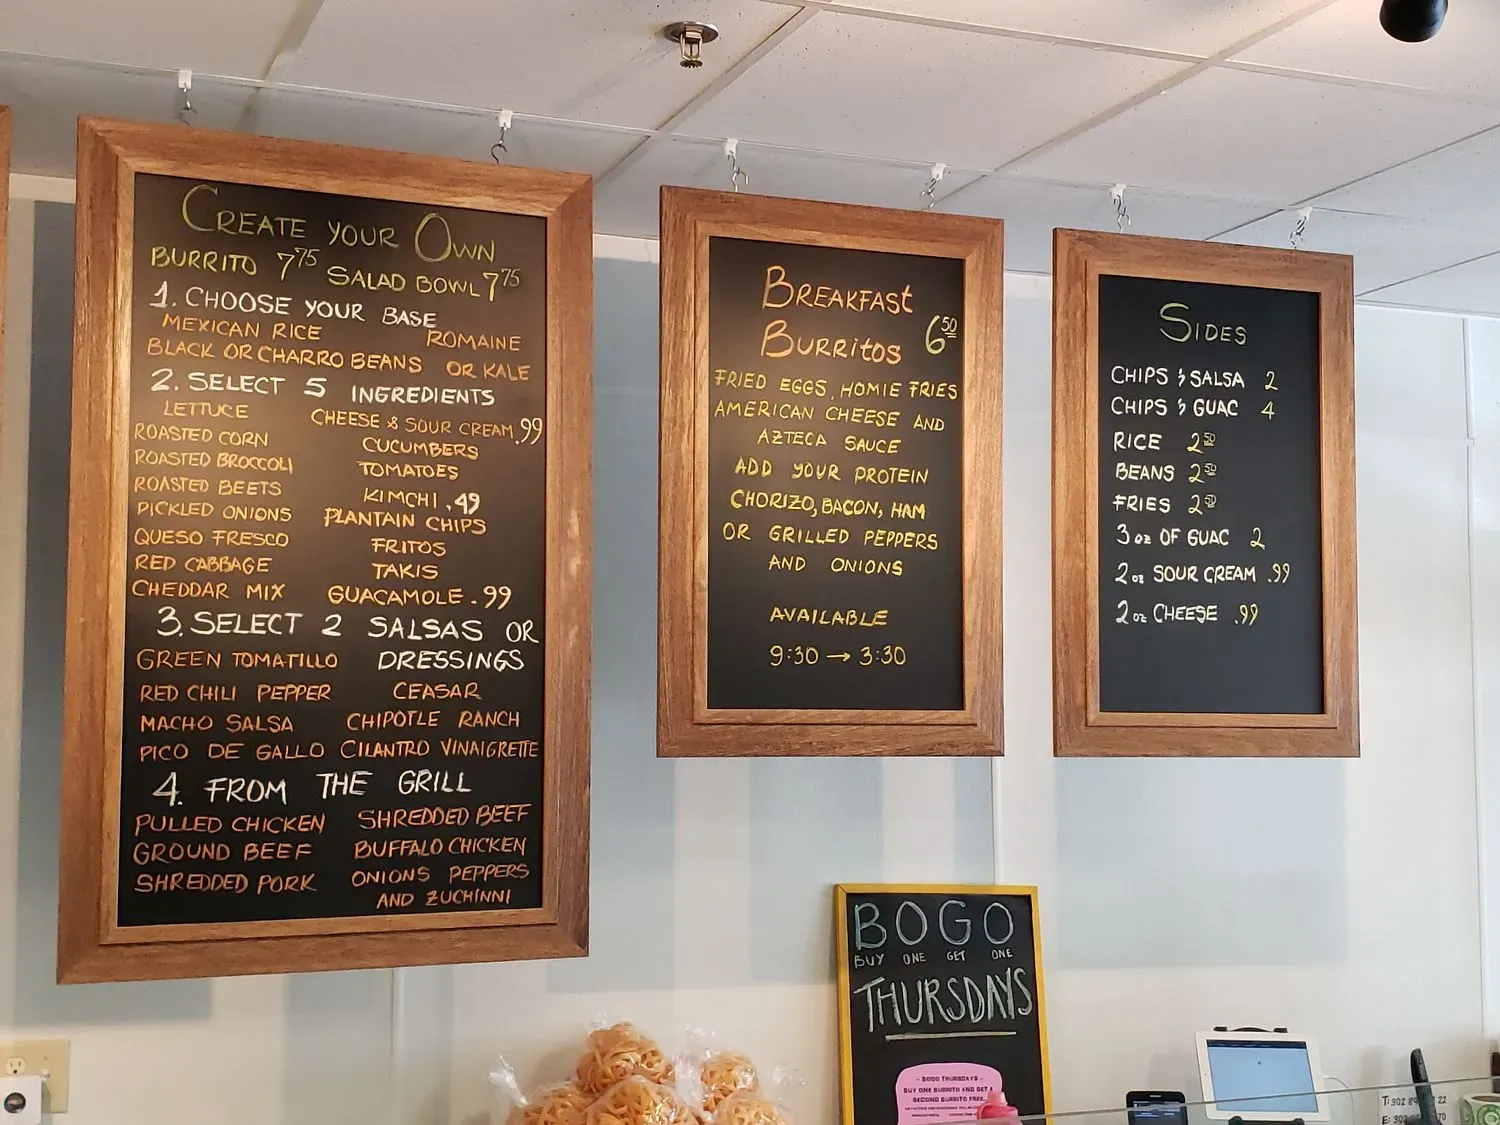 CREATE YOUR OWN
BURRITO 7 75 SALAD BOWL 7 75
1. CHOOSE YOUR BASE
MEXICAN RICE ROMAINE
BLACK OR CHARRO BEANS OR KALE
2. SELECT 5 INGREDIENTS
LETTUCE CHEESE & SOUR CREAM .99
ROASTED CORN CUCUMBERS
ROASTED BROCCOLI TOMATOES
ROASTED BEETS KIMCHI .49
PICKLED ONIONS PLANTAIN CHIPS
QUESO FRESCO FRITOS
RED CABBAGE TAKIS
CHEDDAR MIX GUACAMOLE .99
3. SELECT 2 SALSAS OR
GREEN TOMATILLO DRESSINGS
RED CHILI PEPPER CEASAR
MACHO SALSA CHIPOTLE RANCH
PICO DE GALLO CILANTRO VINAIGRETTE
4. FROM THE GRILL
PULLED CHICKEN SHREDDED BEEF
GROUND BEEF BUFFALO CHICKEN
SHREDDED PORK ONIONS PEPPERS
AND ZUCHINNI
BREAKFAST
BURRITOS 6 50
FRIED EGGS, HOMIE FRIES
AMERICAN CHEESE AND
AZTECA SAUCE
ADD YOUR PROTEIN
CHORIZO, BACON, HAM
OR GRILLED PEPPERS
AND ONIONS
AVAILABLE
9:30 → 3:30
SIDES
CHIPS & SALSA 2
CHIPS & GUAC 4
RICE 2 50
BEANS 2 50
FRIES 2 50
3 oz OF GUAC 2
2 oz SOUR CREAM .99
2 oz CHEESE .99
BOGO
BUY ONE GET ONE
THURSDAYS
- BOGO THURSDAYS -
BUY ONE BURRITO AND GET A
SECOND BURRITO FREE...
T: 302
E: 302